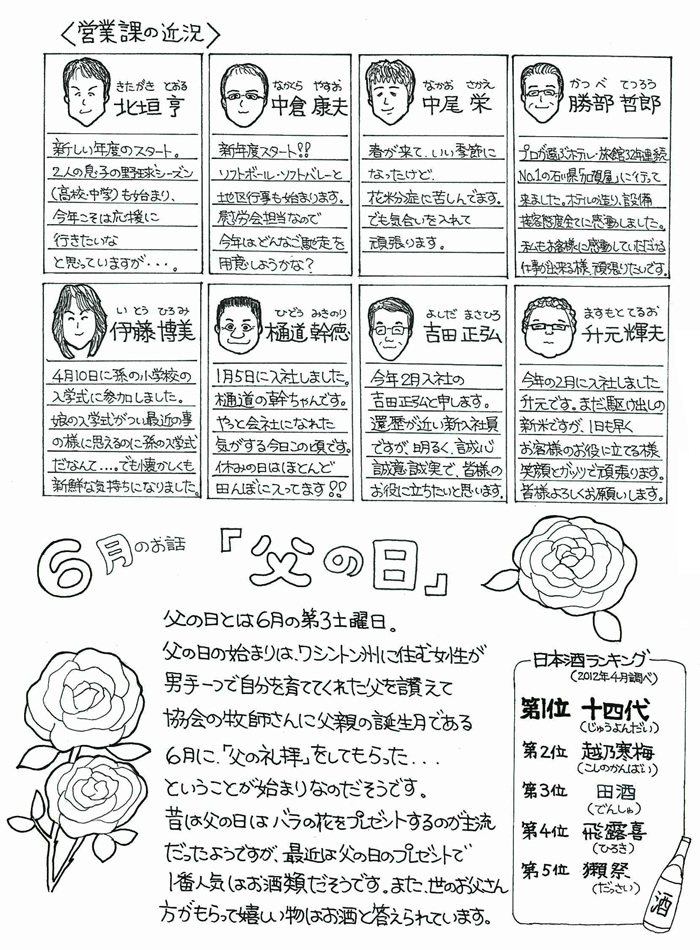 〈営業課の近況〉
きたがき とおる
北垣 亨
新しい年度のスタート。
2人の息子の野球シーズン
(高校・中学)も始まり、
今年こそは応援に
行きたいな
と思っていますが・・・。
なかくら やすお
中倉 康夫
新年度スタート!!
ソフトボール・ソフトバレーと
地区行事も始まります。
慰労会担当なので
今年はどんなご馳走を
用意しようかな?
なかお さかえ
中尾 栄
春が来て、いい季節に
なったけど、
花粉症に苦しんでます。
でも気合いを入れて
頑張ります。
かつべ てつろう
勝部 哲郎
プロが選ぶホテル・旅館32年連続
No.1の石川県「加賀屋」に行って
来ました。ホテルの造り、設備
接客態度全てに感動しました。
私もお客様に感動していただける
仕事が出来る様、頑張りたいです。
いとう ひろみ
伊藤 博美
4月10日に孫の小学校の
入学式に参加しました。
娘の入学式がつい最近の事
の様に思えるのに孫の入学式
だなんて...。でも懐かしくも
新鮮な気持ちになりました。
ひどう みきのり
樋道 幹徳
1月5日に入社しました。
樋道の幹ちゃんです。
やっと会社になれた
気がする今日この頃です。
休みの日はほとんど
田んぼに入ってます!!
よしだ まさひろ
吉田 正弘
今年2月入社の
吉田正弘と申します。
還暦が近い新入社員
ですが、明るく、誠心
誠意誠実で、皆様の
お役に立ちたいと思います。
ますもと てるお
升元 輝夫
今年の2月に入社しました
升元です。まだ駆け出しの
新米ですが、1日も早く
お客様のお役に立てる様
笑顔とガッツで頑張ります。
皆様よろしくお願いします。
6月のお話 「父の日」
父の日とは6月の第3土曜日。
父の日の始まりは、ワシントン州に住む女性が
男手一つで自分を育ててくれた父を讃えて
協会の牧師さんに父親の誕生月である
6月に、「父の礼拝」をしてもらった・・・
ということが始まりなのだそうです。
昔は父の日はバラの花をプレゼントするのが主流
だったようですが、最近は父の日のプレゼントで
1番人気はお酒類だそうです。また、世のお父さん
方がもらって嬉しい物はお酒と答えられています。
日本酒ランキング
(2012年4月調べ)
第1位 十四代
(じゅうよんだい)
第2位 越乃寒梅
(こしのかんばい)
第3位 田酒
(でんしゅ)
第4位 飛露喜
(ひろき)
第5位 獺祭
(だっさい)
酒